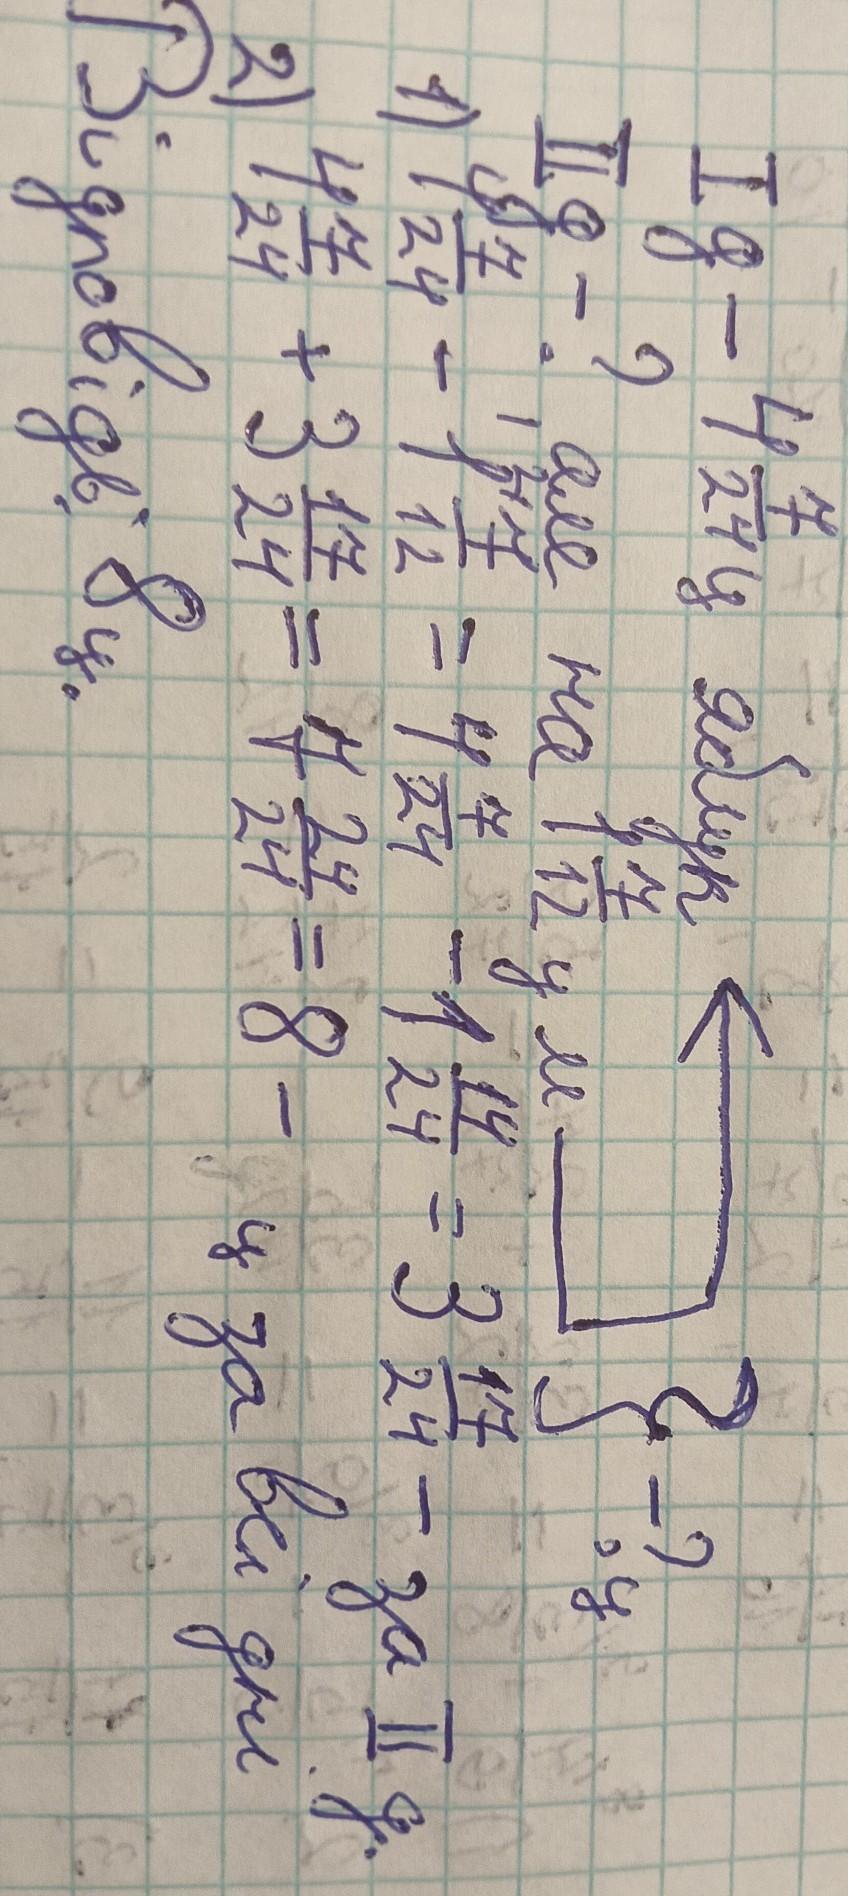 I д - 4 7/24 ц яблук
II д - ? ц, але на 1 7/12 ц м } - ? ц
1) 4 7/24 - 1 7/12 = 4 7/24 - 1 14/24 = 3 17/24 - за II д.
2) 4 7/24 + 3 17/24 = 7 24/24 = 8 - ц за всі дні
Відповідь: 8 ц.